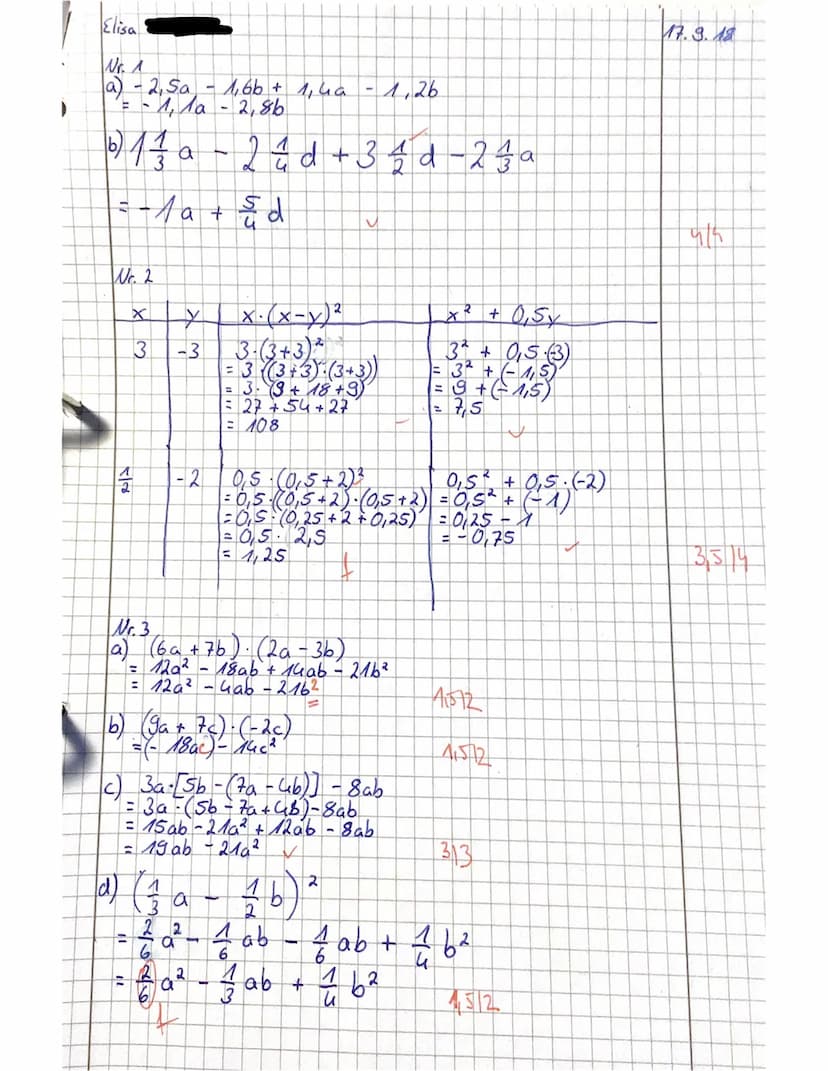 Elisa
17.9.18
Nr. 1
a) - 2,5a - 1,6b + 1,4a - 1,2b
= - 1,1a - 2,8b
b) 1 1/3 a - 2 1/4 d + 3 1/2 d - 2 1/3 a
= -1a + 5/4 d
4/4
Nr. 2
x y x·(x-y)² x² + 0,5y
3 -3 3·(3+3)² 3² + 0,5·(-3)
= 3·((3+3)·(3+3)) = 3² + (-1,5)
= 3·(9+18+9) = 9 + (-1,5)
= 27 + 54 + 27 = 7,5
= 108
1/2 -2 0,5·(0,5+2)² 0,5² + 0,5·(-2)
= 0,5·((0,5+2)·(0,5+2) = 0,5² + (-1)
= 0,5·(0,25+2+0,25) = 0,25 - 1
= 0,5· 2,5 = -0,75
= 1,25
f
3,5/4
Nr. 3
a) (6a + 7b)·(2a - 3b)
= 12a² - 18ab + 14ab - 21b²
= 12a² - 4ab - 21b²
1,5/2
b) (9a + 7c)·(-2c)
= (- 18ac) - 14c²
1,5/2
c) 3a·[5b - (7a - 4b)] - 8ab
= 3a·(5b - 7a + 4b) - 8ab
= 15ab - 21a² + 12ab - 8ab
= 19ab - 21a²
3/3
d) (1/3 a - 1/2 b)²
= 2/6 a² - 1/6 ab - 1/6 ab + 1/4 b²
= 2/6 a² - 1/3 ab + 1/4 b²
f
1,5/2